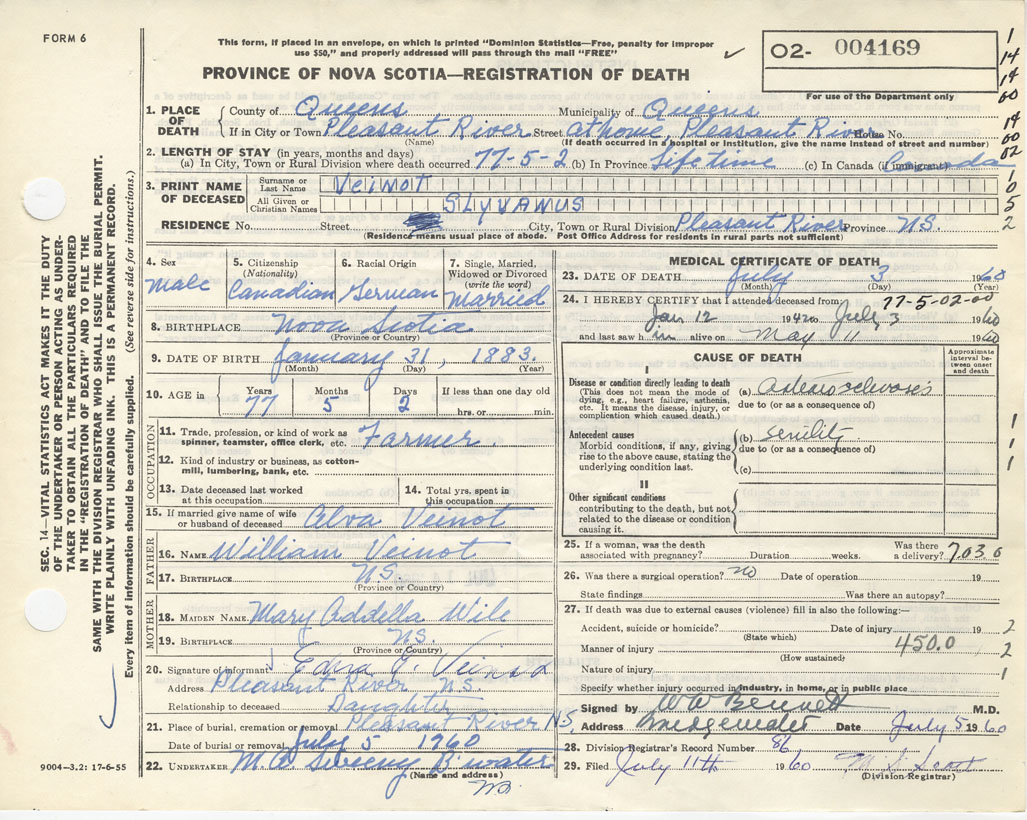 FORM 6
This form, if placed in an envelope, on which is printed "Dominion Statistics—Free, penalty for improper
use $50," and properly addressed will pass through the mail "FREE"
✓
O2- 004169
PROVINCE OF NOVA SCOTIA—REGISTRATION OF DEATH
For use of the Department only
1
14
14
00
14
00
02
1
0
5
2
1. PLACE OF DEATH
County of Queens Municipality of Queens
If in City or Town Pleasant River Street at home, Pleasant River House No.
(Name) (If death occurred in a hospital or Institution, give the name instead of street and number)
2. LENGTH OF STAY (in years, months and days)
(a) In City, Town or Rural Division where death occurred 77-5-2 (b) In Province Life time (c) In Canada (if immigrant) Canada
3. PRINT NAME OF DECEASED
Surname or Last Name Veinot
All Given or Christian Names SLYVANUS
RESIDENCE No. Street City, Town or Rural Division Pleasant River Province N.S.
(Residence means usual place of abode. Post Office Address for residents in rural parts not sufficient)
4. Sex Male
5. Citizenship (Nationality) Canadian
6. Racial Origin German
7. Single, Married, Widowed or Divorced (write the word) Married
8. BIRTHPLACE Nova Scotia
(Province or Country)
9. DATE OF BIRTH January 31, 1883.
(Month) (Day) (Year)
10. AGE in Years 77 Months 5 Days 2 If less than one day old
hrs. or min.
OCCUPATION
11. Trade, profession, or kind of work as spinner, teamster, office clerk, etc. Farmer.
12. Kind of industry or business, as cotton-mill, lumbering, bank, etc.
13. Date deceased last worked at this occupation
14. Total yrs. spent in this occupation
15. If married give name of wife or husband of deceased Alva Veinot
FATHER
16. NAME William Veinot
17. BIRTHPLACE N.S.
(Province or Country)
MOTHER
18. MAIDEN NAME Mary Addella Wile
19. BIRTHPLACE N.S.
(Province or Country)
20. Signature of informant Edna Veinot
Address Pleasant River N.S.
Relationship to deceased Daughter
21. Place of burial, cremation or removal Pleasant River N.S.
Date of burial or removal July 5 1960
22. UNDERTAKER Sweeny B'water
(Name and address)
N.S.
MEDICAL CERTIFICATE OF DEATH
23. DATE OF DEATH July 3 1960
(Month) (Day) (Year)
24. I HEREBY CERTIFY that I attended deceased from 77-5-02-00
Jan 12 1942 to July 3 1960
and last saw him alive on May 11 1960
CAUSE OF DEATH
Approximate interval between onset and death
I
Disease or condition directly leading to death
(This does not mean the mode of dying, e.g., heart failure, asthenia, etc. It means the disease, injury, or complication which caused death.)
(a) Arteriosclerosis
due to (or as a consequence of)
Antecedent causes
Morbid conditions, if any, giving rise to the above cause, stating the underlying condition last.
(b) senility
due to (or as a consequence of)
(c)
1
1
1
II
Other significant conditions
contributing to the death, but not related to the disease or condition causing it.
25. If a woman, was the death associated with pregnancy? Duration weeks. Was there a delivery? 7030
26. Was there a surgical operation? no Date of operation 19
State findings Was there an autopsy?
27. If death was due to external causes (violence) fill in also the following:—
Accident, suicide or homicide? Date of injury 19 2
(State which)
Manner of injury 450.0 2
(How sustained)
Nature of injury 1
Specify whether injury occurred in industry, in home, or in public place
Signed by W W Bennett M.D.
Address Bridgewater Date July 5 1960
28. Division Registrar's Record Number 86
29. Filed July 11th 1960 M. S. Scott
(Division Registrar)
SEC. 14—VITAL STATISTICS ACT MAKES IT THE DUTY
OF THE UNDERTAKER OR PERSON ACTING AS UNDER-
TAKER TO OBTAIN ALL THE PARTICULARS REQUIRED
IN THE "REGISTRATION OF DEATH" AND FILE THE
SAME WITH THE DIVISION REGISTRAR WHO SHALL ISSUE THE BURIAL PERMIT.
WRITE PLAINLY WITH UNFADING INK. THIS IS A PERMANENT RECORD.
Every item of information should be carefully supplied. (See reverse side for instructions.)
9004—3.2: 17-6-55